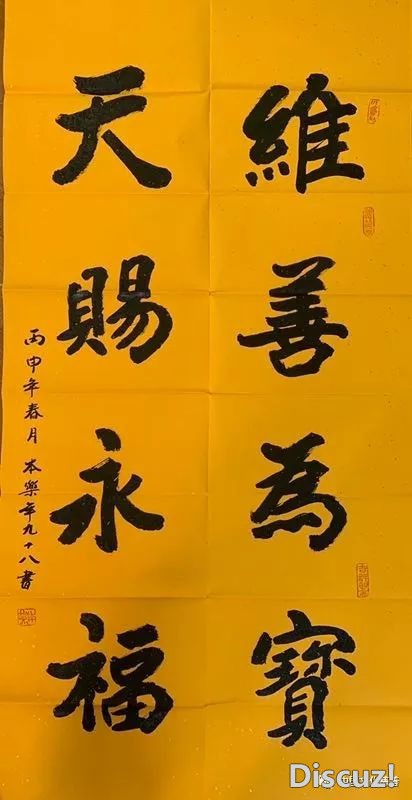 維善為寶
天賜永福
丙申年春月 本樂年九十八書
Discuz!